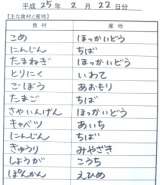 平成 25年 2月 22日分
【主な食材と産地】
食材 産地
こめ ほっかいどう
にんじん ちば
たまねぎ ほっかいどう
とりにく いわて
ごぼう あおもり
たまご ちば
さやいんげん ほっかいどう
キャベツ あいち
にんじん ちば
きゅうり みやざき
しょうが こうち
ぽんかん えひめ